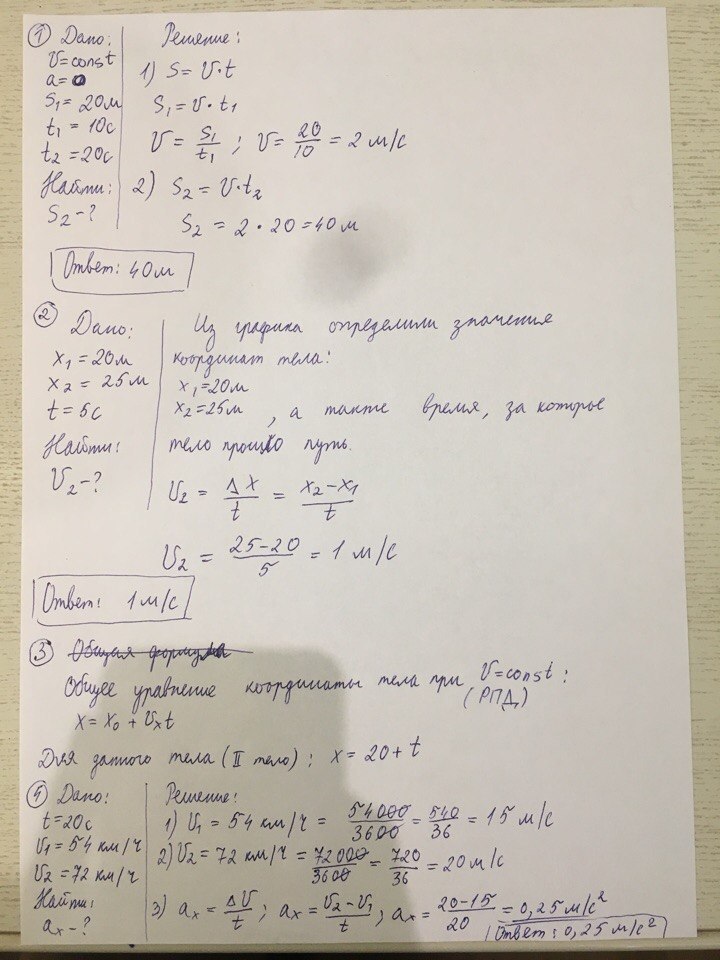 ① Дано:
V=const
a=0
S₁ = 20м
t₁ = 10с
t₂ = 20с
Найти:
S₂ - ?
Решение:
1) S = V·t
S₁ = V·t₁
V = S₁/t₁ ; V = 20/10 = 2 м/с
2) S₂ = V·t₂
S₂ = 2·20 = 40м
Ответ: 40м
② Дано:
x₁ = 20м
x₂ = 25м
t = 5с
Найти:
V₂ - ?
Из графика определили значения
координат тела:
x₁ = 20м
x₂ = 25м, а также время, за которое
тело прошло путь.
V₂ = Δx/t = (x₂-x₁)/t
V₂ = (25-20)/5 = 1 м/с
Ответ: 1м/с
③ Общая формула
Общее уравнение координаты тела при V=const:
(РПД)
x = x₀ + Vₓt
Для данного тела (II тело): x = 20 + t
④ Дано:
t=20с
V₁ = 54 км/ч
V₂ = 72 км/ч
Найти:
aₓ - ?
Решение:
1) V₁ = 54 км/ч = 54000/3600 = 540/36 = 15 м/с
2) V₂ = 72 км/ч = 72000/3600 = 720/36 = 20 м/с
3) aₓ = ΔV/t ; aₓ = (V₂-V₁)/t ; aₓ = (20-15)/20 = 0,25 м/с²
Ответ: 0,25 м/с²